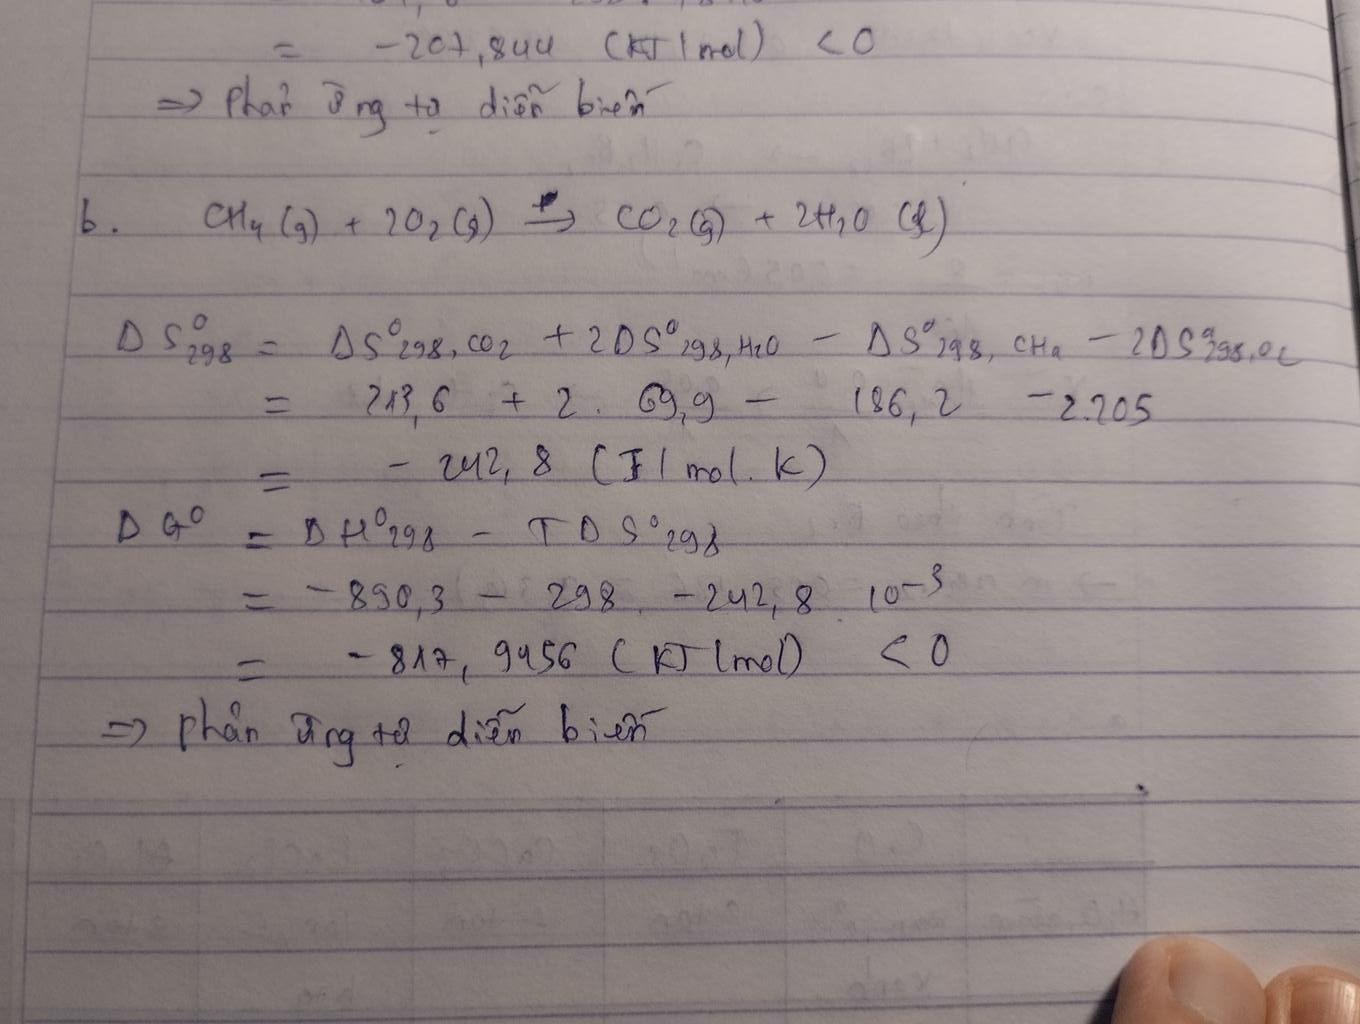 = -207,844 (KJ/mol) <0
=> Phản ứng tự diễn biến
b. CH4 (g) + 2O2 (g) → CO2 (g) + 2H2O (l)
ΔS°298 = ΔS°298,CO2 + 2ΔS°298,H2O - ΔS°298,CH4 - 2ΔS°298,O2
= 213,6 + 2. 69,9 - 186,2 -2.205
= - 242,8 (J/mol.K)
ΔG° = ΔH°298 - TΔS°298
= -890,3 - 298. -242,8. 10-3
= -817,9456 (KJ/mol) <0
=> phản ứng tự diễn biến